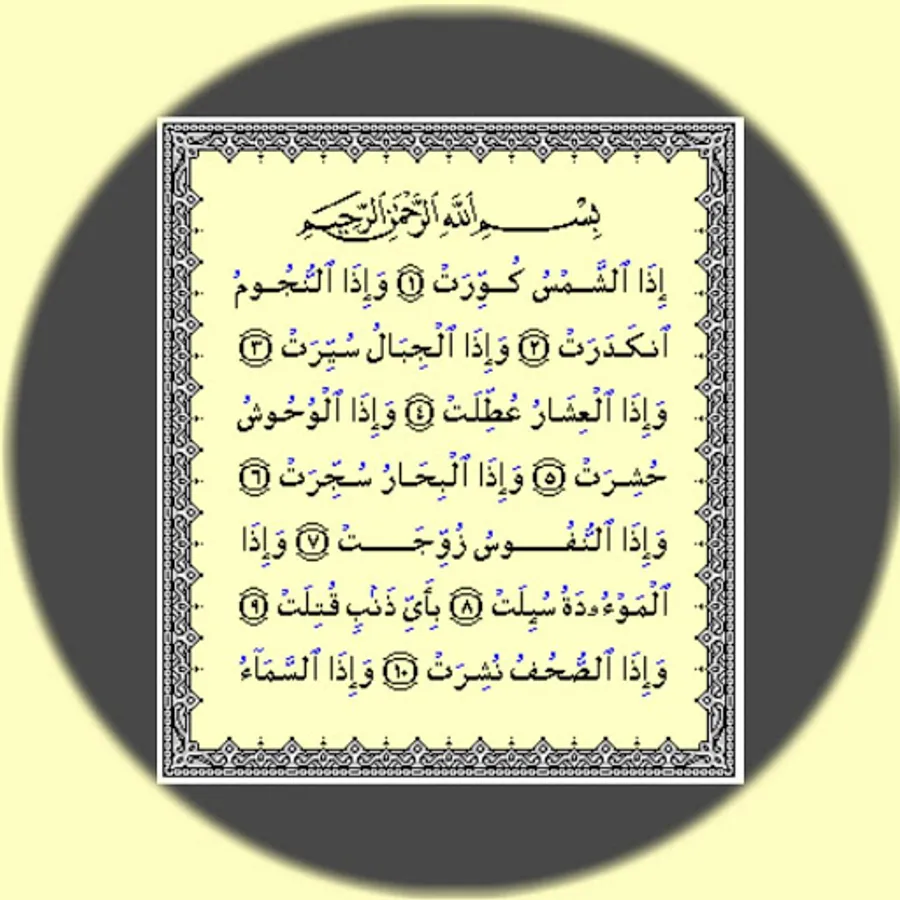 بِسْمِ ٱللَّهِ ٱلرَّحْمَٰنِ ٱلرَّحِيمِ
إِذَا ٱلشَّمْسُ كُوِّرَتْ ١ وَإِذَا ٱلنُّجُومُ
ٱنكَدَرَتْ ٢ وَإِذَا ٱلْجِبَالُ سُيِّرَتْ ٣
وَإِذَا ٱلْعِشَارُ عُطِّلَتْ ٤ وَإِذَا ٱلْوُحُوشُ
حُشِرَتْ ٥ وَإِذَا ٱلْبِحَارُ سُجِّرَتْ ٦
وَإِذَا ٱلنُّفُوسُ زُوِّجَتْ ٧ وَإِذَا
ٱلْمَوْءُۥدَةُ سُئِلَتْ ٨ بِأَىِّ ذَنۢبٍ قُتِلَتْ ٩
وَإِذَا ٱلصُّحُفُ نُشِرَتْ ١٠ وَإِذَا ٱلسَّمَآءُ